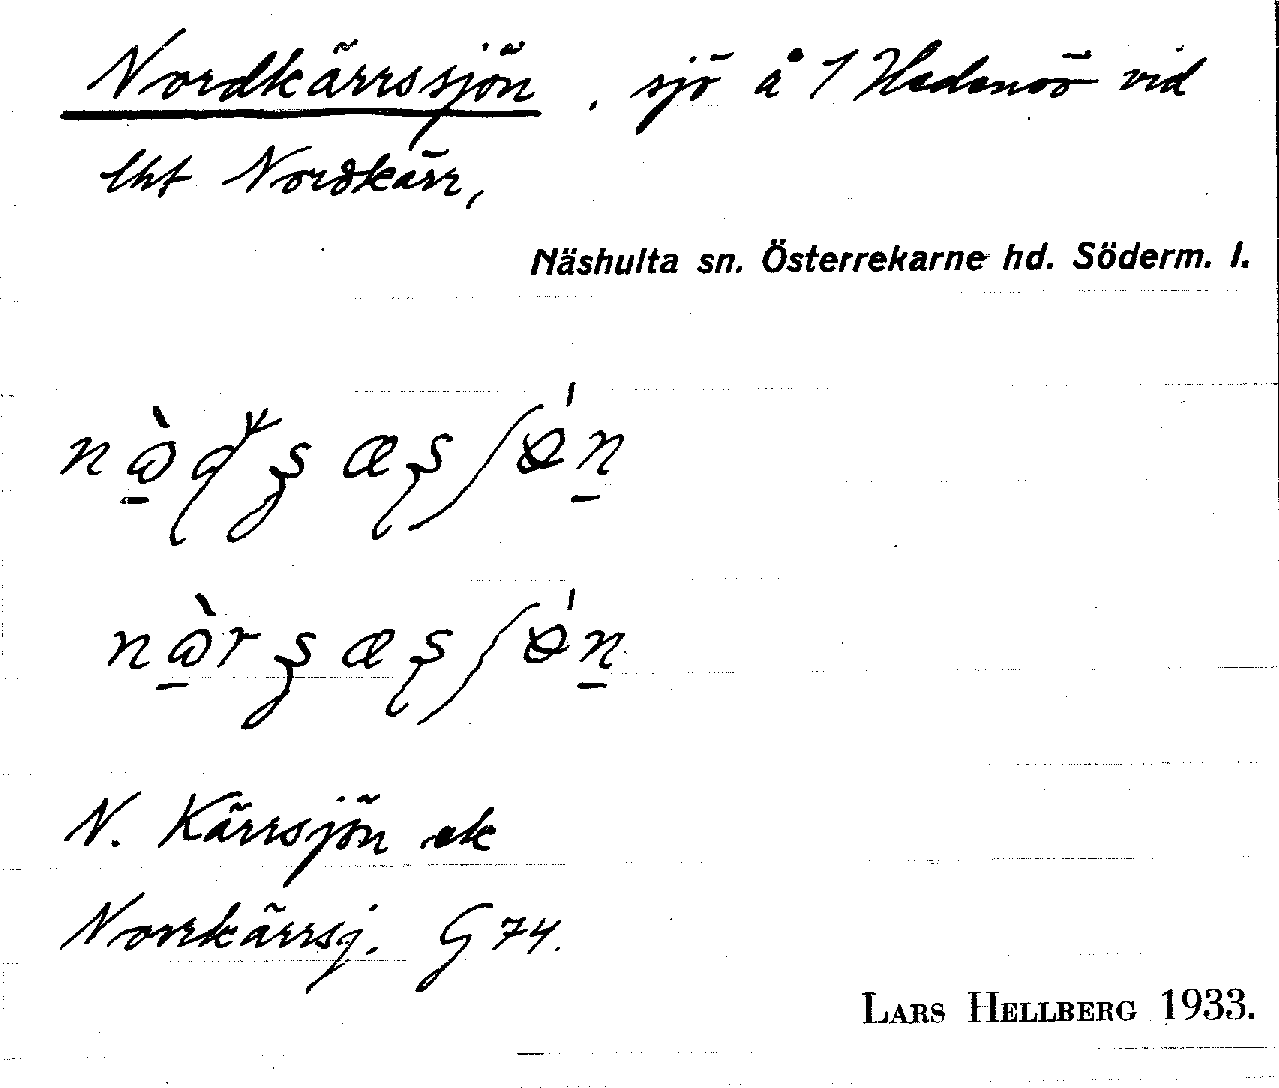 Nordkärrssjön, sjö å 1 Hedensö vid
lht Nordkärr,
Näshulta sn. Österrekarne hd. Söderm. l.
N. Kärrsjön ek
Norrkärrsj. G 74.
LARS HELLBERG 1933.